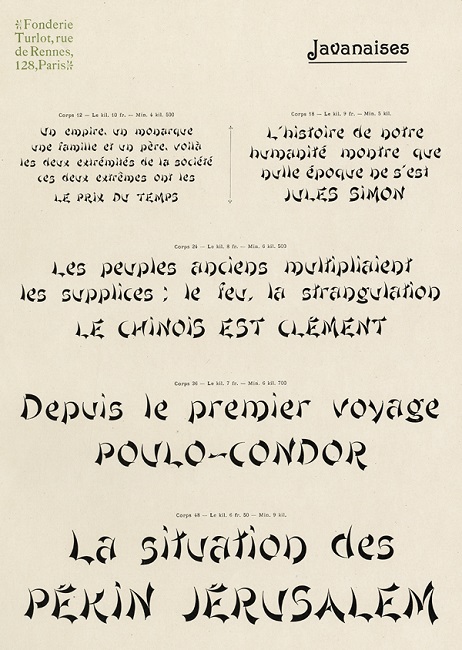 Fonderie
Turlot, rue
de Rennes,
128, Paris
Javanaises
Corps 12 — Le kil. 10 fr. — Min. 4 kil. 500
Un empire, un monarque
une famille et un père, voilà
les deux extrémités de la société
ces deux extrêmes ont les
LE PRIX DU TEMPS
Corps 18 — Le kil. 9 fr. — Min. 5 kil.
L'histoire de notre
humanité montre que
nulle époque ne s'est
JULES SIMON
Corps 24 — Le kil. 8 fr. — Min. 6 kil. 500
Les peuples anciens multipliaient
les supplices ; le feu, la strangulation
LE CHINOIS EST CLÉMENT
Corps 36 — Le kil. 7 fr. — Min. 6 kil. 700
Depuis le premier voyage
POULO-CONDOR
Corps 48 — Le kil. 6 fr. 50 — Min. 9 kil.
La situation des
PÉKIN JÉRUSALEM